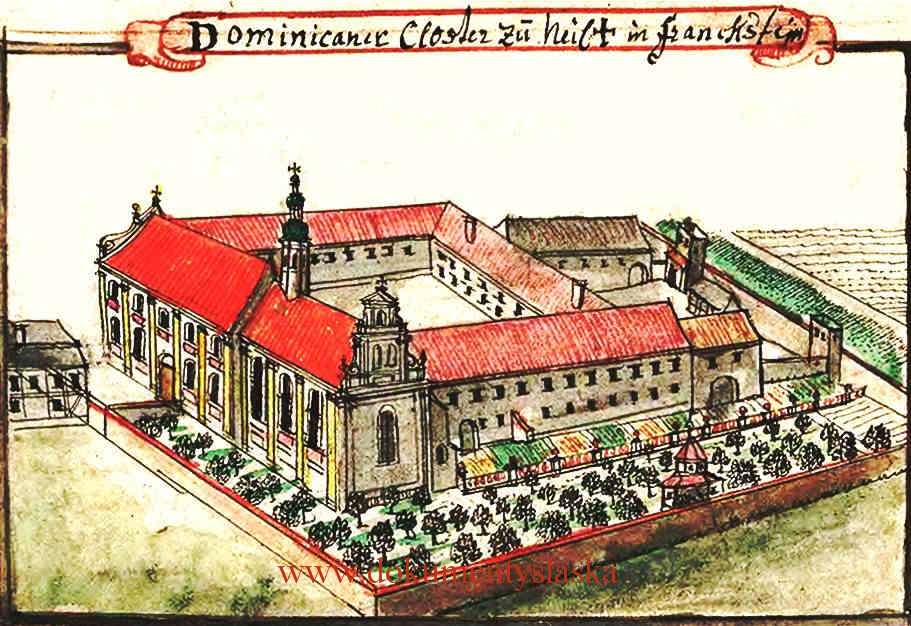 Dominicaner Closter zu heil✝ in Franckstein
www.dokumentyslaska